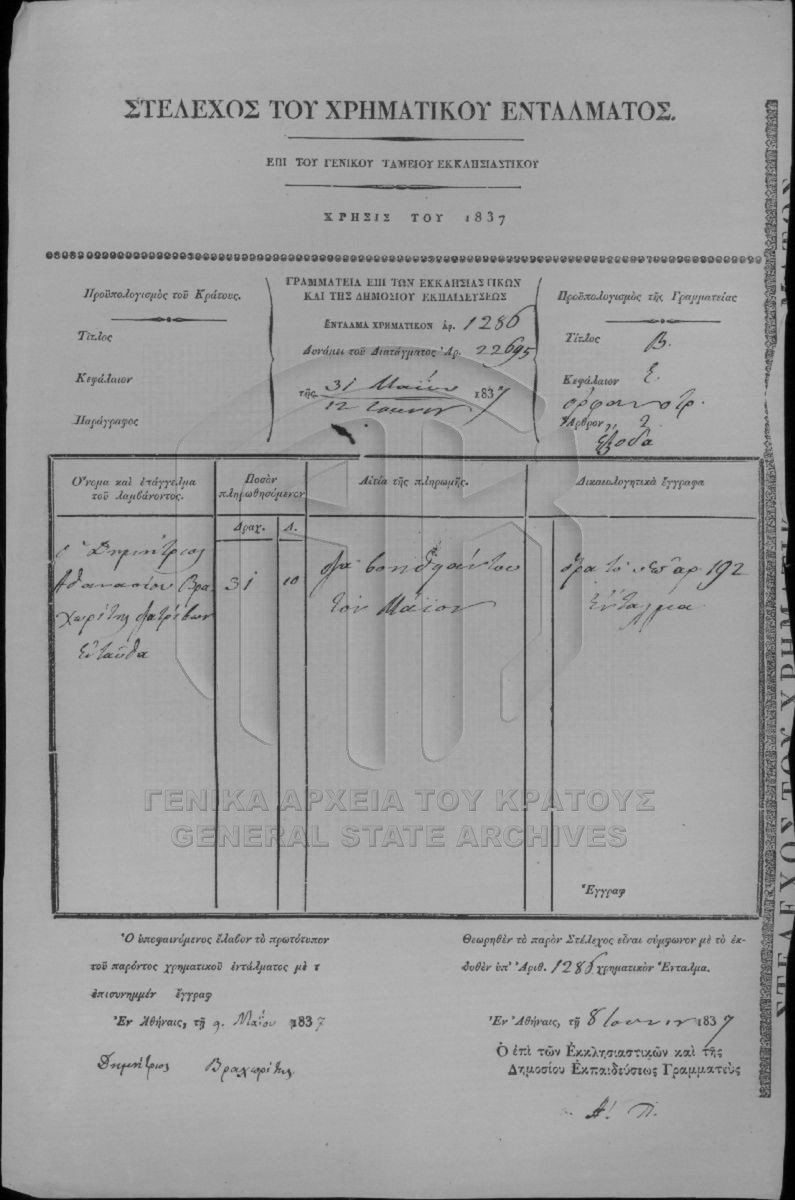 ΣΤΕΛΕΧΟΣ ΤΟΥ ΧΡΗΜΑΤΙΚΟΥ ΕΝΤΑΛΜΑΤΟΣ.
ΕΠΙ ΤΟΥ ΓΕΝΙΚΟΥ ΤΑΜΕΙΟΥ ΕΚΚΛΗΣΙΑΣΤΙΚΟΥ
ΧΡΗΣΙΣ ΤΟΥ 1837
Προϋπολογισμὸς τοῦ Κράτους.
Τίτλος
Κεφάλαιον
Παράγραφος
ΓΡΑΜΜΑΤΕΙΑ ΕΠΙ ΤΩΝ ΕΚΚΛΗΣΙΑΣΤΙΚΩΝ
ΚΑΙ ΤΗΣ ΔΗΜΟΣΙΟΥ ΕΚΠΑΙΔΕΥΣΕΩΣ
ΕΝΤΑΛΜΑ ΧΡΗΜΑΤΙΚΟΝ ἀρ. 1286
Δυνάμει τοῦ Διατάγματος Ἀρ. 22695
τῆς 31 Μαΐου 1837
12
Προϋπολογισμὸς τῆς Γραμματείας
Τίτλος Β.
Κεφάλαιον Ε.
Ἄρθρον 2.
ἔξοδα
Ὄνομα καὶ ἐπάγγελμα
τοῦ λαμβάνοντος.
Ποσὸν
πληρωθησόμενον
Δραχ. Λ.
Αἰτία τῆς πληρωμῆς.
Δικαιολογητικὰ ἔγγραφα
ὁ Δημήτριος
Ἀθανασίου Βρα-
χωρίτης διατρίβων
ἐνταῦθα
31 10
τὸν Μάϊον
ὅρα τὸ ὑπ' ἀρ 192
ἔνταλμα
ΓΕΝΙΚΑ ΑΡΧΕΙΑ ΤΟΥ ΚΡΑΤΟΥΣ
GENERAL STATE ARCHIVES
Ἔγγραφ
Ὁ ὑποφαινόμενος ἔλαβον τὸ πρωτότυπον
τοῦ παρόντος χρηματικοῦ ἐντάλματος μὲ τ
ἐπισυνημμέν ἔγγραφ
Ἐν Ἀθήναις, τῇ 9. Μαΐου 1837
Δημήτριος Βραχωρίτης
Θεωρηθὲν τὸ παρὸν Στέλεχος εἶναι σύμφωνον μὲ τὸ ἐκ-
δοθὲν ὑπ' Ἀριθ. 1286 χρηματικὸν Ἔνταλμα.
Ἐν Ἀθήναις, τῇ 8 1837
Ὁ ἐπὶ τῶν Ἐκκλησιαστικῶν καὶ τῆς
Δημοσίου Ἐκπαιδεύσεως Γραμματεὺς
Α. Π.
ΣΤΕΛΕΧΟΣ ΤΟΥ ΧΡΗΜΑΤΙΚ